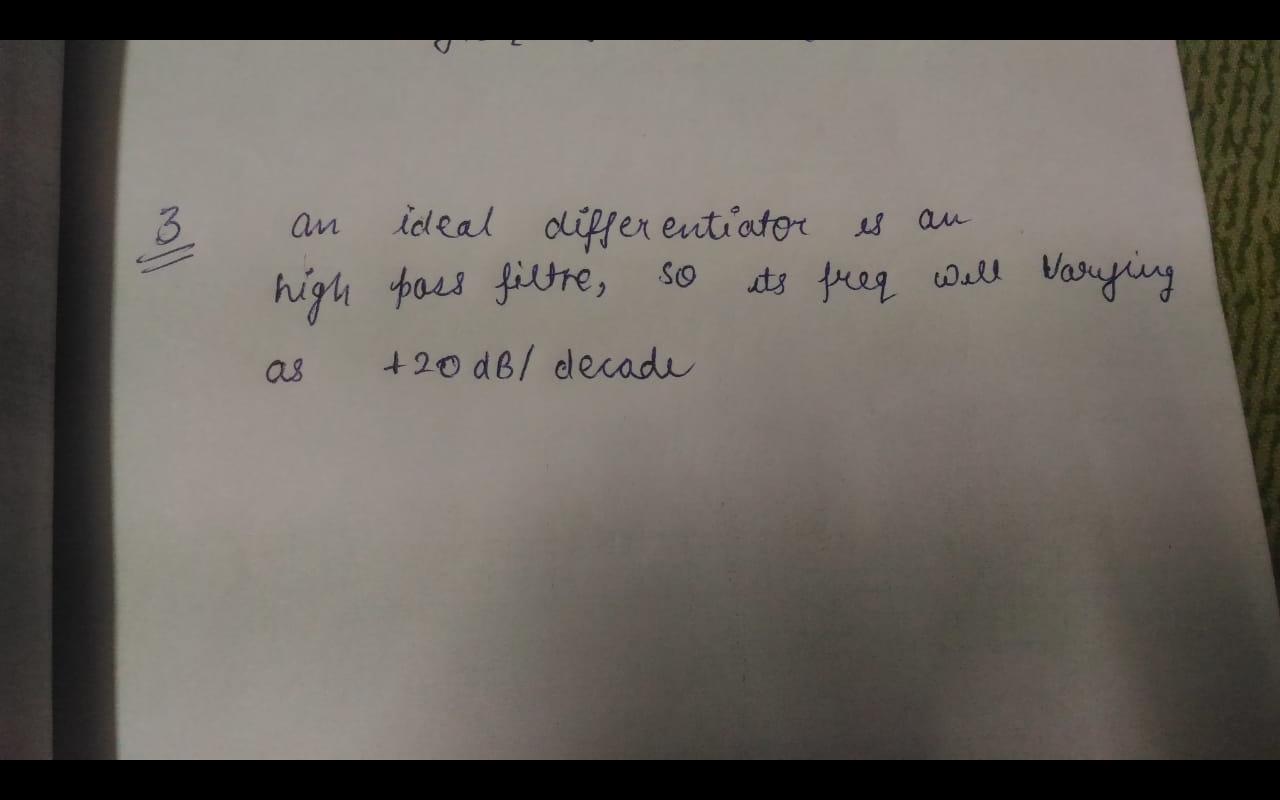 3 an ideal differentiator is an
high pass filtre, so its freq will varying
as +20 dB/ decade